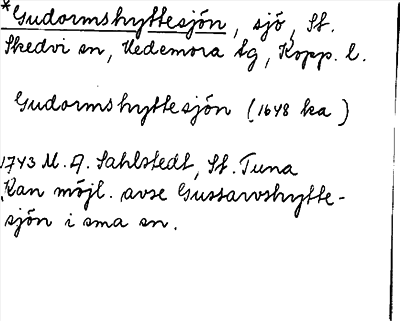 *Gudormshyttesjön, sjö, St.
Skedvi sn, Hedemora tg, Kopp. l.
Gudormshyttesjön (1648 ka)
1743 M. A. Sahlstedt, St. Tuna
Kan möjl. avse Gussarvshytte-
sjön i sma sn.